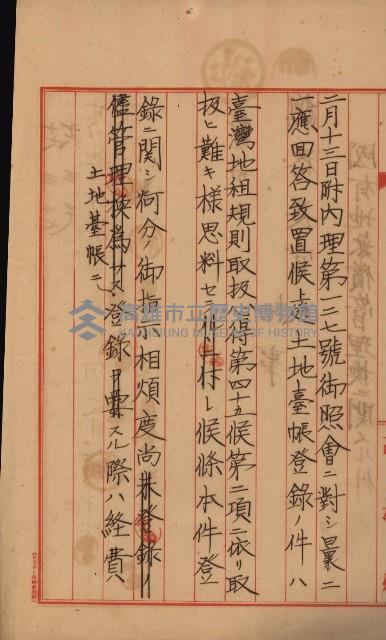 二月十三日附內理第一三七號御照會ニ對シ曩ニ
一應回答致置候 土地臺帳登錄ノ件ハ
臺灣地租規則取扱心得第四十五條第二項ニ依リ取
扱ヒ難キ樣思料セラレ候條本件登
錄ニ関シ何分ノ御指 相煩度尚未登錄ノ
儘管理換為サス登錄ヲ要スル際ハ経費
土地臺帳ニ
高雄市立歷史博物館
KAOHSIUNG MUSEUM OF HISTORY